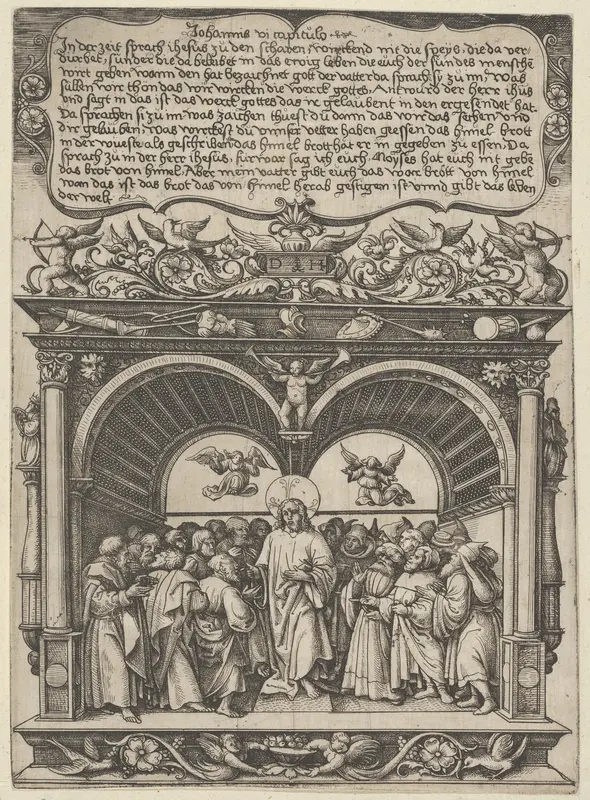 Johannis vi capitulo
In der zeit sprach ihesus zu den scharen, wirckend nit die speys, die da ver-
dirbet, sunder die da beleibet in das ewig leben die euch der sun des menschē
wirt geben wann den hat bezaichnet gott der vatter da sprachē si zu im, Was
sullen wir thon das wir wircken die werck gottes, Antwurd der herr ihūs
vnd sagt in das ist das werck gottes das ir gelaubent in den er gesendet hat.
Da sprachen si zu im was zaichen thuest du dann das wir das sechen vnd
dir gelauben, was wirckest du vnnser vetter haben geessen das himel brott
in der wueste als geschriben das himel brott hat er in gegeben zu essen, Da
sprach zu in der herr ihesus, fürwar sag ich euch, Moyses hat euch nit gebē
das brot von himel, Aber mein vatter gibt euch das war brott von himel
wan das ist das brot das von himel herab gestigen ist vnnd gibt das leben
der welt
D H